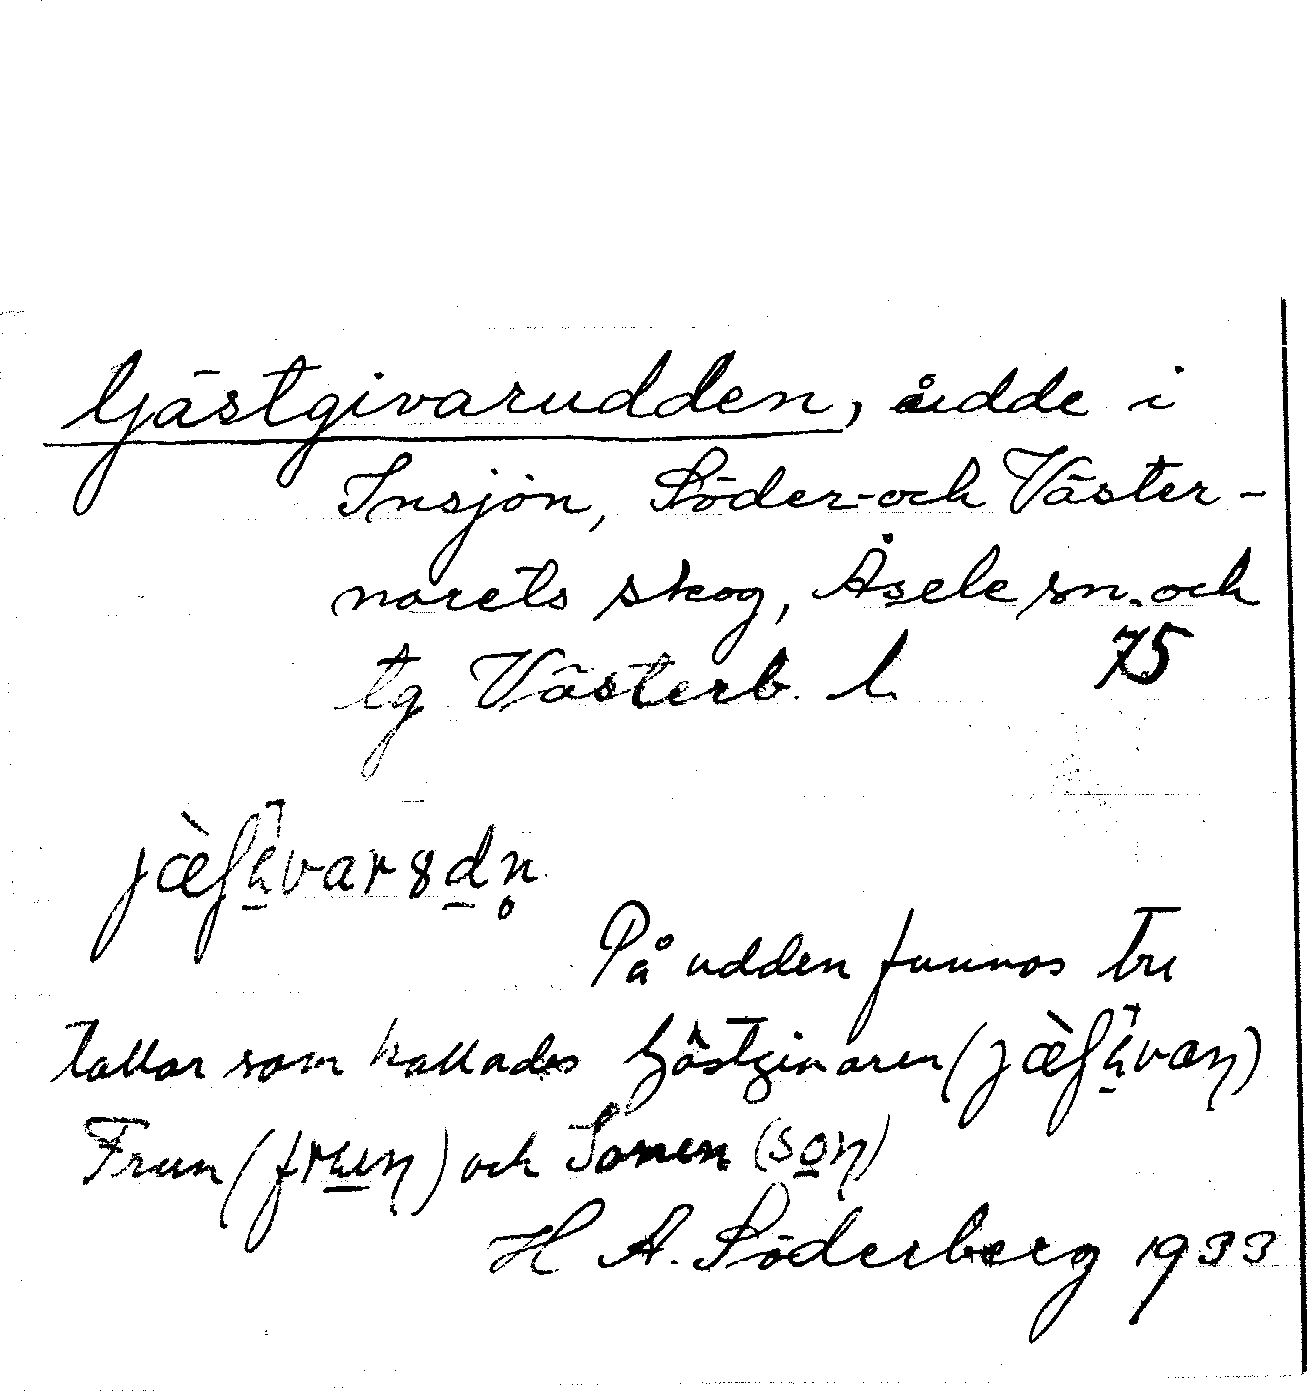 Gästgivarudden, udde i
Insjön, Söder- och Väster-
norets skog, Åsele sn. och
tg Västerb. l.
75
På udden funnos tre
tallar som kallades Gästgivaren
Frun och Sonen
H A. Söderberg 1933